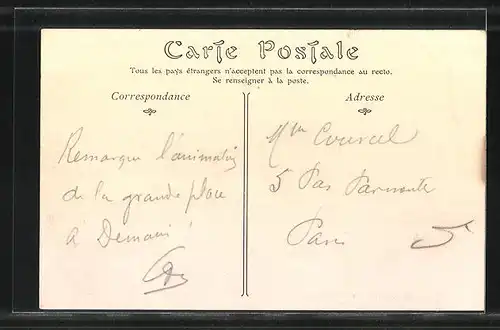 Carte Postale
Tous les pays étrangers n'acceptent pas la correspondance au recto.
Se renseigner à la poste.
Correspondance
Remarque l'animation
de la grande place
à Demain!
Adresse
Courcel
5 Pas
Paris